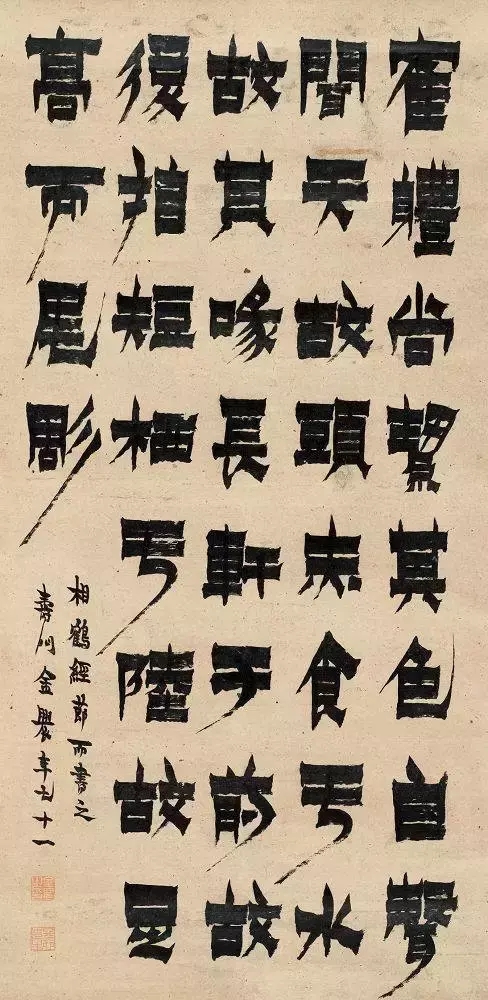 寉軆尚絜其色白聲
聞天故頭赤食亏水
故其喙長軒于前故
後指短栖亏陸故足
高而尾彫
相鶴經節而書之
壽門金農年十一